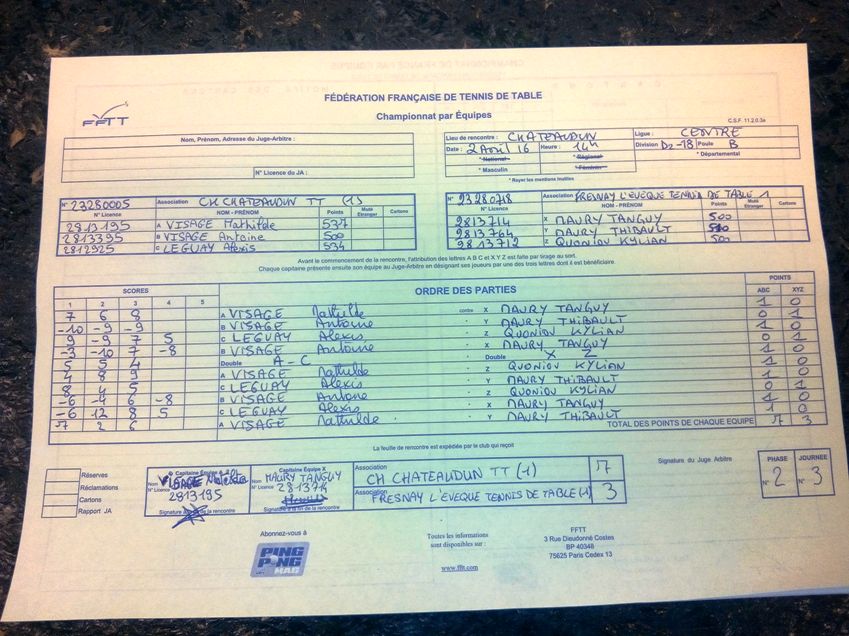 FÉDÉRATION FRANÇAISE DE TENNIS DE TABLE
FFTT
Championnat par Équipes
C.S.F. 11.2.0.3a
Nom, Prénom, Adresse du Juge-Arbitre :
N° Licence du JA :
Lieu de rencontre : CHATEAUDUN Ligue : CENTRE
Date : 2 Avril 16 Heure : 14h Division D2-18 Poule B
* National * Régional * Départemental
* Masculin * Féminin
* Rayer les mentions inutiles
N° 23280005 Association CH CHATEAUDUN TT (1)
N° Licence NOM - PRÉNOM Points Muté Etranger Cartons
2813195 A VISAGE Mathilde 577
2813395 B VISAGE Antoine 500
2812925 C LEGUAY Alexis 534
N° 23280718 Association FRESNAY L'EVEQUE TENNIS DE TABLE 1
N° Licence NOM - PRÉNOM Points Muté Etranger Cartons
2813714 X MAURY TANGUY 500
2813764 Y MAURY THIBAULT 500
2813712 Z QUONIOU KYLIAN 500
Avant le commencement de la rencontre, l'attribution des lettres A B C et X Y Z est faite par tirage au sort.
Chaque capitaine présente ensuite son équipe au Juge-Arbitre en désignant ses joueurs par une des trois lettres dont il est bénéficiaire.
SCORES ORDRE DES PARTIES POINTS
1 2 3 4 5 ABC XYZ
7 6 8 A VISAGE Mathilde contre X MAURY TANGUY 1 0
-10 -9 -9 B VISAGE Antoine Y MAURY THIBAULT 0 1
9 -9 7 5 C LEGUAY Alexis Z QUONIOU KYLIAN 1 0
-3 -10 7 -8 B VISAGE Antoine X MAURY TANGUY 0 1
5 5 4 Double A - C Double X Z 1 0
4 8 9 A VISAGE Mathilde Z QUONIOU KYLIAN 1 0
8 4 5 C LEGUAY Alexis Y MAURY THIBAULT 1 0
-6 -4 6 -8 B VISAGE Antoine Z QUONIOU KYLIAN 0 1
-6 12 8 5 C LEGUAY Alexis X MAURY TANGUY 1 0
7 2 6 A VISAGE Mathilde Y MAURY THIBAULT 1 0
TOTAL DES POINTS DE CHAQUE EQUIPE 7 3
La feuille de rencontre est expédiée par le club qui reçoit
Réserves
Réclamations
Cartons
Rapport JA
Capitaine Équipe A
Nom VISAGE Mathilde
N° Licence 2813195
Signature
Capitaine Équipe X
Nom MAURY TANGUY
N° Licence 2813714
Signature à la fin de la rencontre
Association
CH CHATEAUDUN TT (1) 7
Association
FRESNAY L'EVEQUE TENNIS DE TABLE (1) 3
Signature du Juge Arbitre
PHASE JOURNEE
N° 2 N° 3
Abonnez-vous à
PING PONG MAG
Toutes les informations
sont disponibles sur :
www.fftt.com
FFTT
3 Rue Dieudonné Costes
BP 40348
75625 Paris Cedex 13